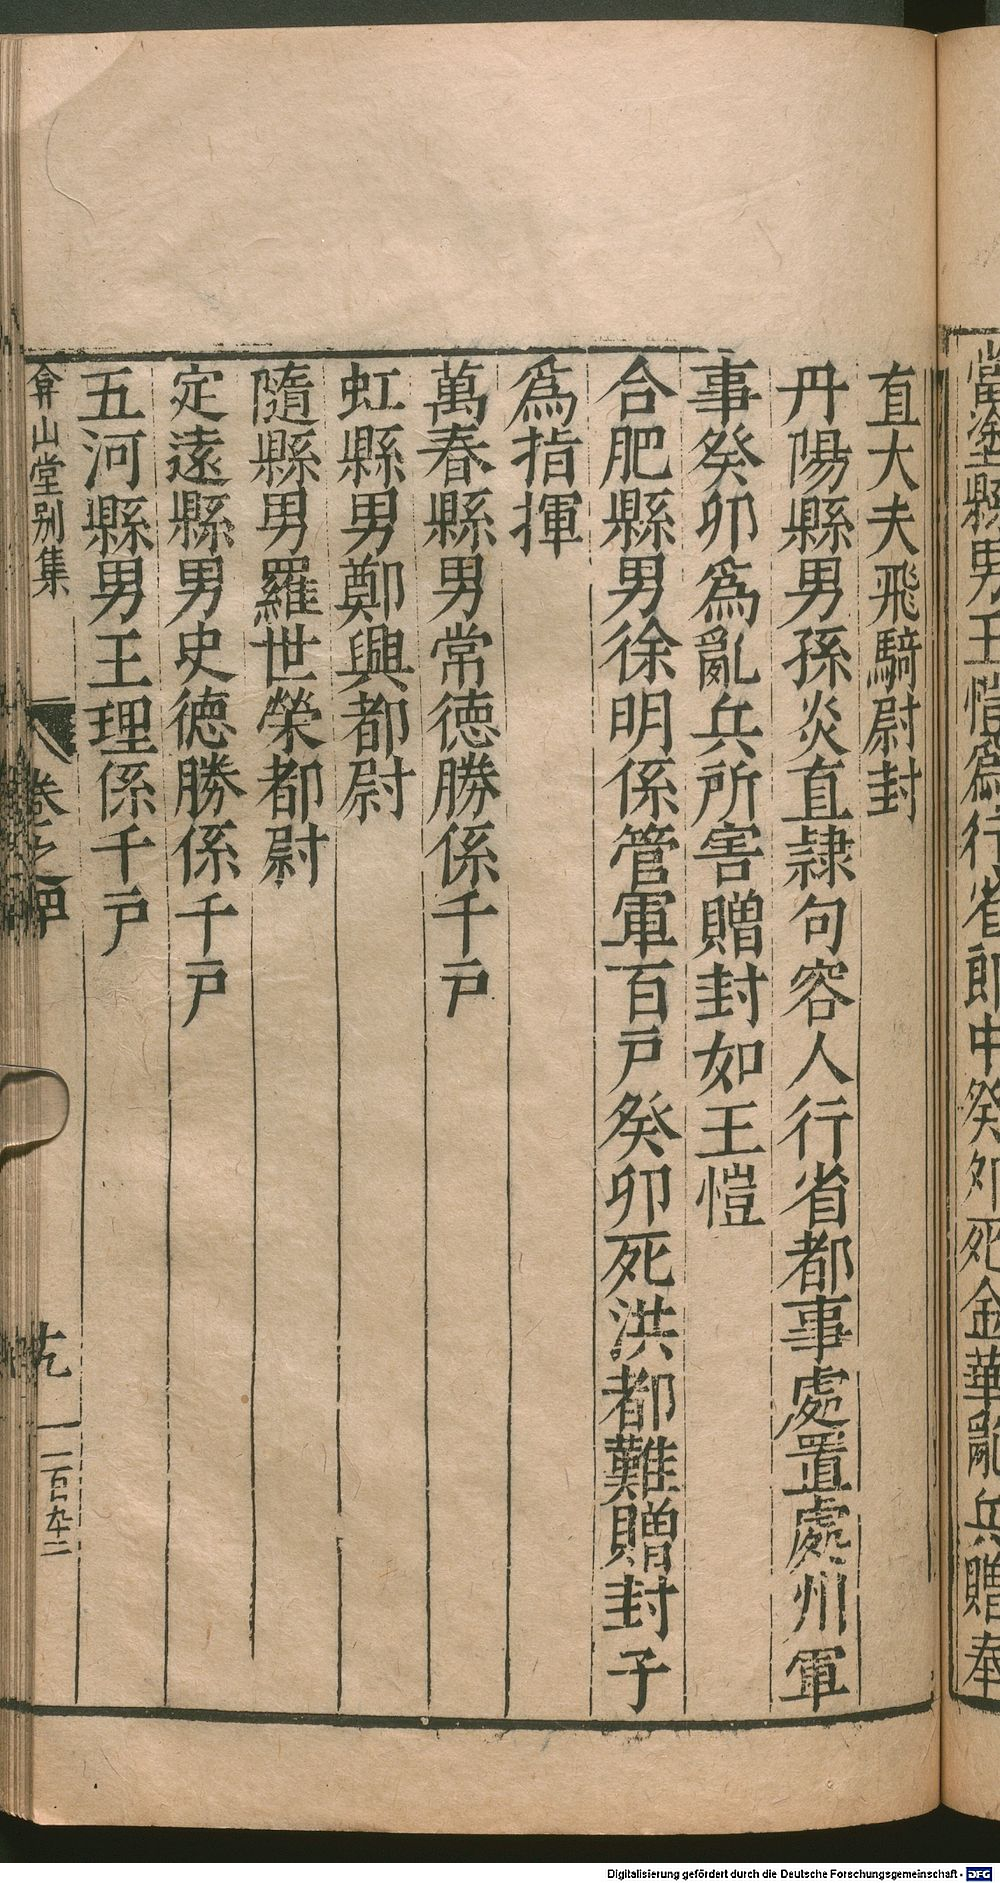 當塗縣男王愷爲行省郎中癸卯死金華亂兵贈奉
直大夫飛騎尉封
丹陽縣男孫炎直隷句容人行省都事處置處州軍
事癸卯爲亂兵所害贈封如王愷
合肥縣男徐明係管軍百戸癸卯死洪都難贈封子
爲指揮
萬春縣男常德勝係千戸
虹縣男鄭興都尉
隨縣男羅世榮都尉
定遠縣男史德勝係千戸
五河縣男王理係千戸
弇山堂別集
卷之
一百九十二
Digitalisierung gefördert durch die Deutsche Forschungsgemeinschaft - DFG